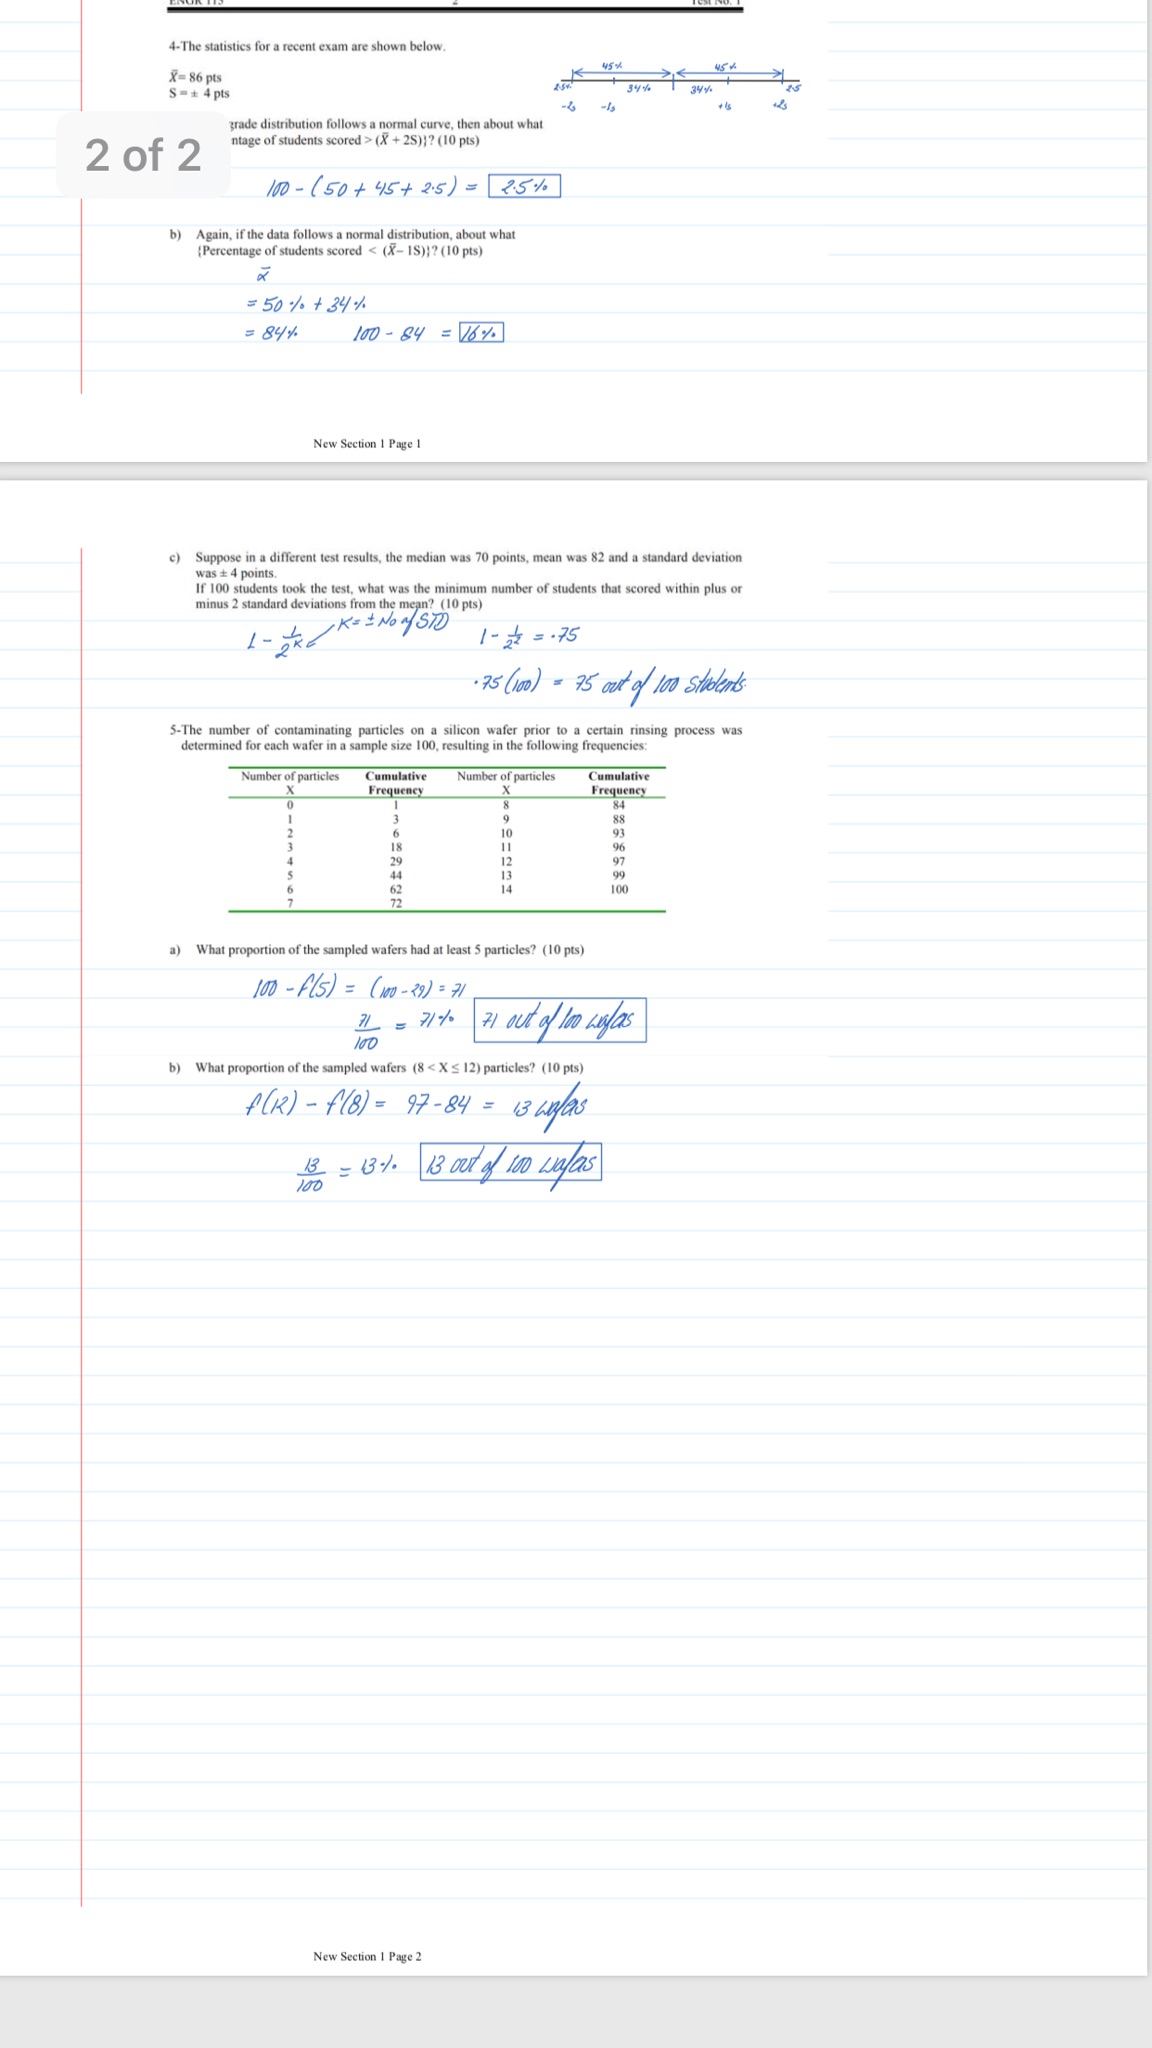 ENGR 115 2 Test No. 1
4-The statistics for a recent exam are shown below.
X̄= 86 pts
S = ± 4 pts
45% 45%
2.5% 34% 34% 2.5
-2s -1s +1s +2s
grade distribution follows a normal curve, then about what
ntage of students scored > (X̄ + 2S)}? (10 pts)
2 of 2
100 - (50 + 45 + 2.5) = 2.5%
b) Again, if the data follows a normal distribution, about what
{Percentage of students scored < (X̄– 1S)}? (10 pts)
x̄
= 50% + 34%
= 84% 100 - 84 = 16%
New Section 1 Page 1
c) Suppose in a different test results, the median was 70 points, mean was 82 and a standard deviation
was ± 4 points.
If 100 students took the test, what was the minimum number of students that scored within plus or
minus 2 standard deviations from the mean? (10 pts)
1 - 1/2^K K = ± No of STD 1 - 1/2² = .75
.75(100) = 75 out of 100 students
5-The number of contaminating particles on a silicon wafer prior to a certain rinsing process was
determined for each wafer in a sample size 100, resulting in the following frequencies:
Number of particles Cumulative Number of particles Cumulative
X Frequency X Frequency
0 1 8 84
1 3 9 88
2 6 10 93
3 18 11 96
4 29 12 97
5 44 13 99
6 62 14 100
7 72
a) What proportion of the sampled wafers had at least 5 particles? (10 pts)
100 - f(5) = (100 - 29) = 71
71/100 = 71% 71 out of 100 wafers
b) What proportion of the sampled wafers (8 < X ≤ 12) particles? (10 pts)
f(12) - f(8) = 97 - 84 = 13 wafers
13/100 = 13% 13 out of 100 wafers
New Section 1 Page 2